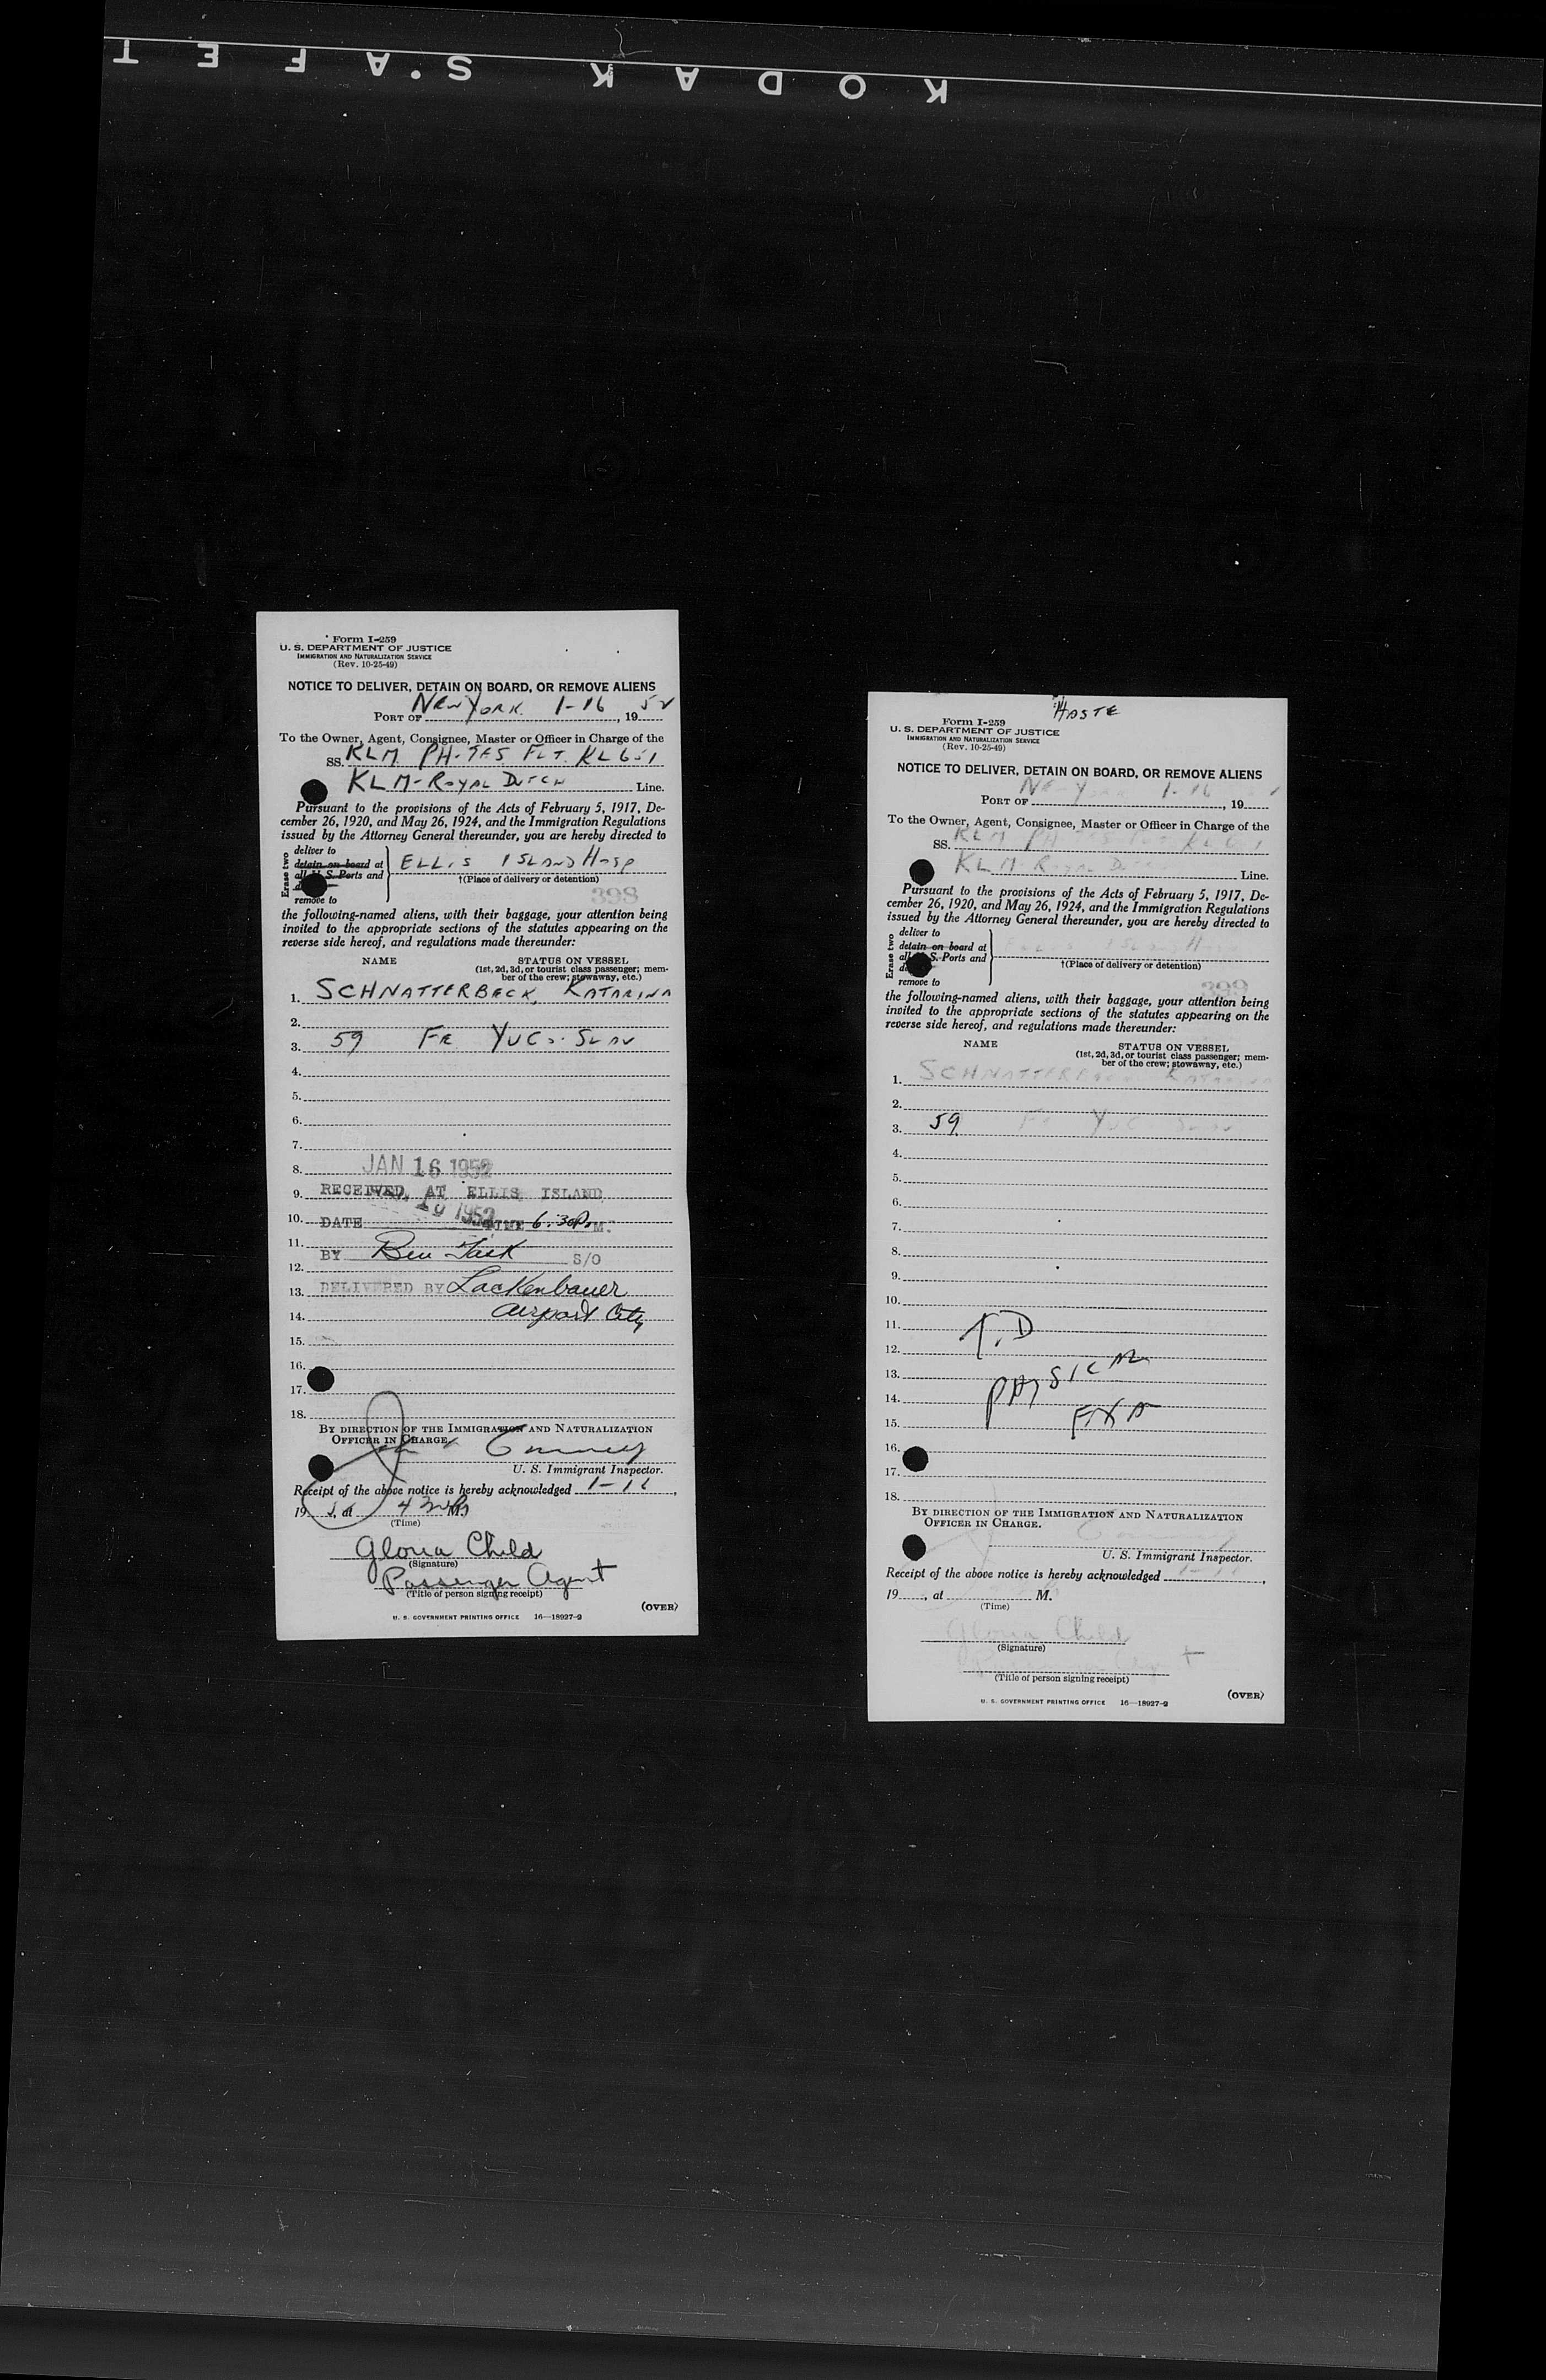 KODAK SAFET
Form I-259
U. S. DEPARTMENT OF JUSTICE
IMMIGRATION AND NATURALIZATION SERVICE
(Rev. 10-25-49)
NOTICE TO DELIVER, DETAIN ON BOARD, OR REMOVE ALIENS
PORT OF NEW YORK 1-16, 1952
To the Owner, Agent, Consignee, Master or Officer in Charge of the
SS. KLM PH- FLT. KL 651
KLM-ROYAL DUTCH Line.
Pursuant to the provisions of the Acts of February 5, 1917, De-
cember 26, 1920, and May 26, 1924, and the Immigration Regulations
issued by the Attorney General thereunder, you are hereby directed to
Erase two
deliver to
detain on board at
all U. S. Ports and
remove to
ELLIS ISLAND HOSP
†(Place of delivery or detention)
398
the following-named aliens, with their baggage, your attention being
invited to the appropriate sections of the statutes appearing on the
reverse side hereof, and regulations made thereunder:
NAME STATUS ON VESSEL
(1st, 2d, 3d, or tourist class passenger; mem-
ber of the crew; stowaway, etc.)
1. SCHNATTERBECK, KATARINA
2.
3. 59 FE YUGO-SLAV
4.
5.
6.
7.
8. JAN 16 1952
9. RECEIVED AT ELLIS ISLAND
10. DATE 1952 TIME 6:30 P.M.
11. BY Ben S/O
12.
13. DELIVERED BY Lackenbauer
14. Airport City
15.
16.
17.
18.
BY DIRECTION OF THE IMMIGRATION AND NATURALIZATION
OFFICER IN CHARGE.
U. S. Immigrant Inspector.
Receipt of the above notice is hereby acknowledged 1-16,
19, at 4 M.
(Time)
Gloria Child
(Signature)
Passenger Agent
(Title of person signing receipt)
U. S. GOVERNMENT PRINTING OFFICE 16—18927-2
(OVER)
HASTE
Form I-259
U. S. DEPARTMENT OF JUSTICE
IMMIGRATION AND NATURALIZATION SERVICE
(Rev. 10-25-49)
NOTICE TO DELIVER, DETAIN ON BOARD, OR REMOVE ALIENS
PORT OF NEW YORK 1-16, 19
To the Owner, Agent, Consignee, Master or Officer in Charge of the
SS. KLM PH- KL 651
KLM-ROYAL DUTCH Line.
Pursuant to the provisions of the Acts of February 5, 1917, De-
cember 26, 1920, and May 26, 1924, and the Immigration Regulations
issued by the Attorney General thereunder, you are hereby directed to
Erase two
deliver to
detain on board at
all U. S. Ports and
remove to
ELLIS ISLAND HOSP
†(Place of delivery or detention)
399
the following-named aliens, with their baggage, your attention being
invited to the appropriate sections of the statutes appearing on the
reverse side hereof, and regulations made thereunder:
NAME STATUS ON VESSEL
(1st, 2d, 3d, or tourist class passenger; mem-
ber of the crew; stowaway, etc.)
1. SCHNATTERBECK KATARINA
2.
3. 59 FE YUGO-SLAV
4.
5.
6.
7.
8.
9.
10.
11. T.D
12.
13. PHYSICAL
14.
15. EXA
16.
17.
18.
BY DIRECTION OF THE IMMIGRATION AND NATURALIZATION
OFFICER IN CHARGE.
U. S. Immigrant Inspector.
Receipt of the above notice is hereby acknowledged 1-16,
19, at M.
(Time)
Gloria Child
(Signature)
(Title of person signing receipt)
U. S. GOVERNMENT PRINTING OFFICE 16—18927-2
(OVER)